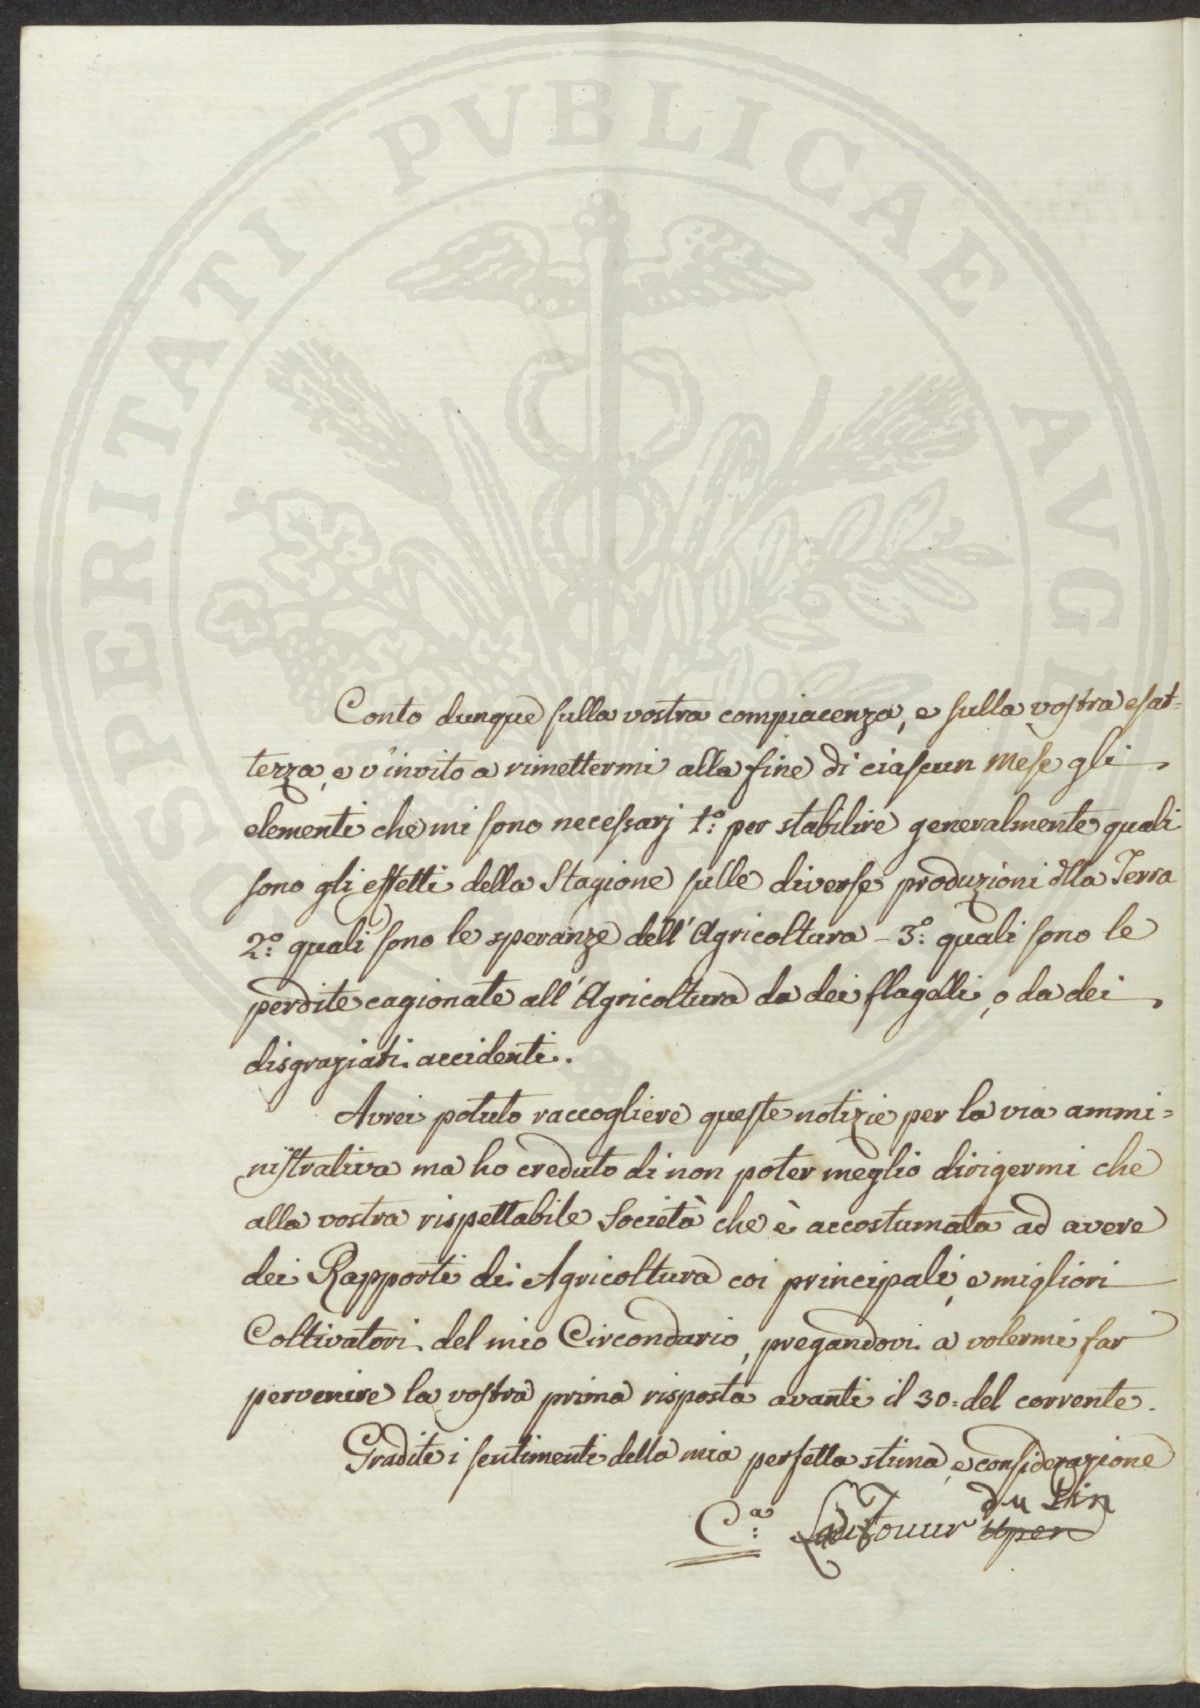 PROSPERITATI PVBLICAE AVGENDAE
Conto dunque sulla vostra compiacenza, e sulla vostra esat=
tezza, e v'invito a rimettermi alla fine di ciascun Mese gli
elementi che mi sono necessarj 1.º per stabilire generalmente quali
sono gli effetti della Stagione sulle diverse produzioni dlla Terra
2.º quali sono le speranze dell'Agricoltura - 3.º quali sono le
perdite cagionate all'Agricoltura da dei flagelli, o da dei
disgraziati accidenti.
Avrei potuto raccogliere queste notizie per la via ammi=
nistrativa ma ho creduto di non poter meglio dirigermi che
alla vostra rispettabile Società che è accostumata ad avere
dei Rapporti di Agricoltura coi principali, e migliori
Coltivatori del mio Circondario, pregandovi a volermi far
pervenire la vostra prima risposta avanti il 30. del corrente.
Gradite i sentimenti della mia perfetta stima, e considerazione
du Pin
C.ª